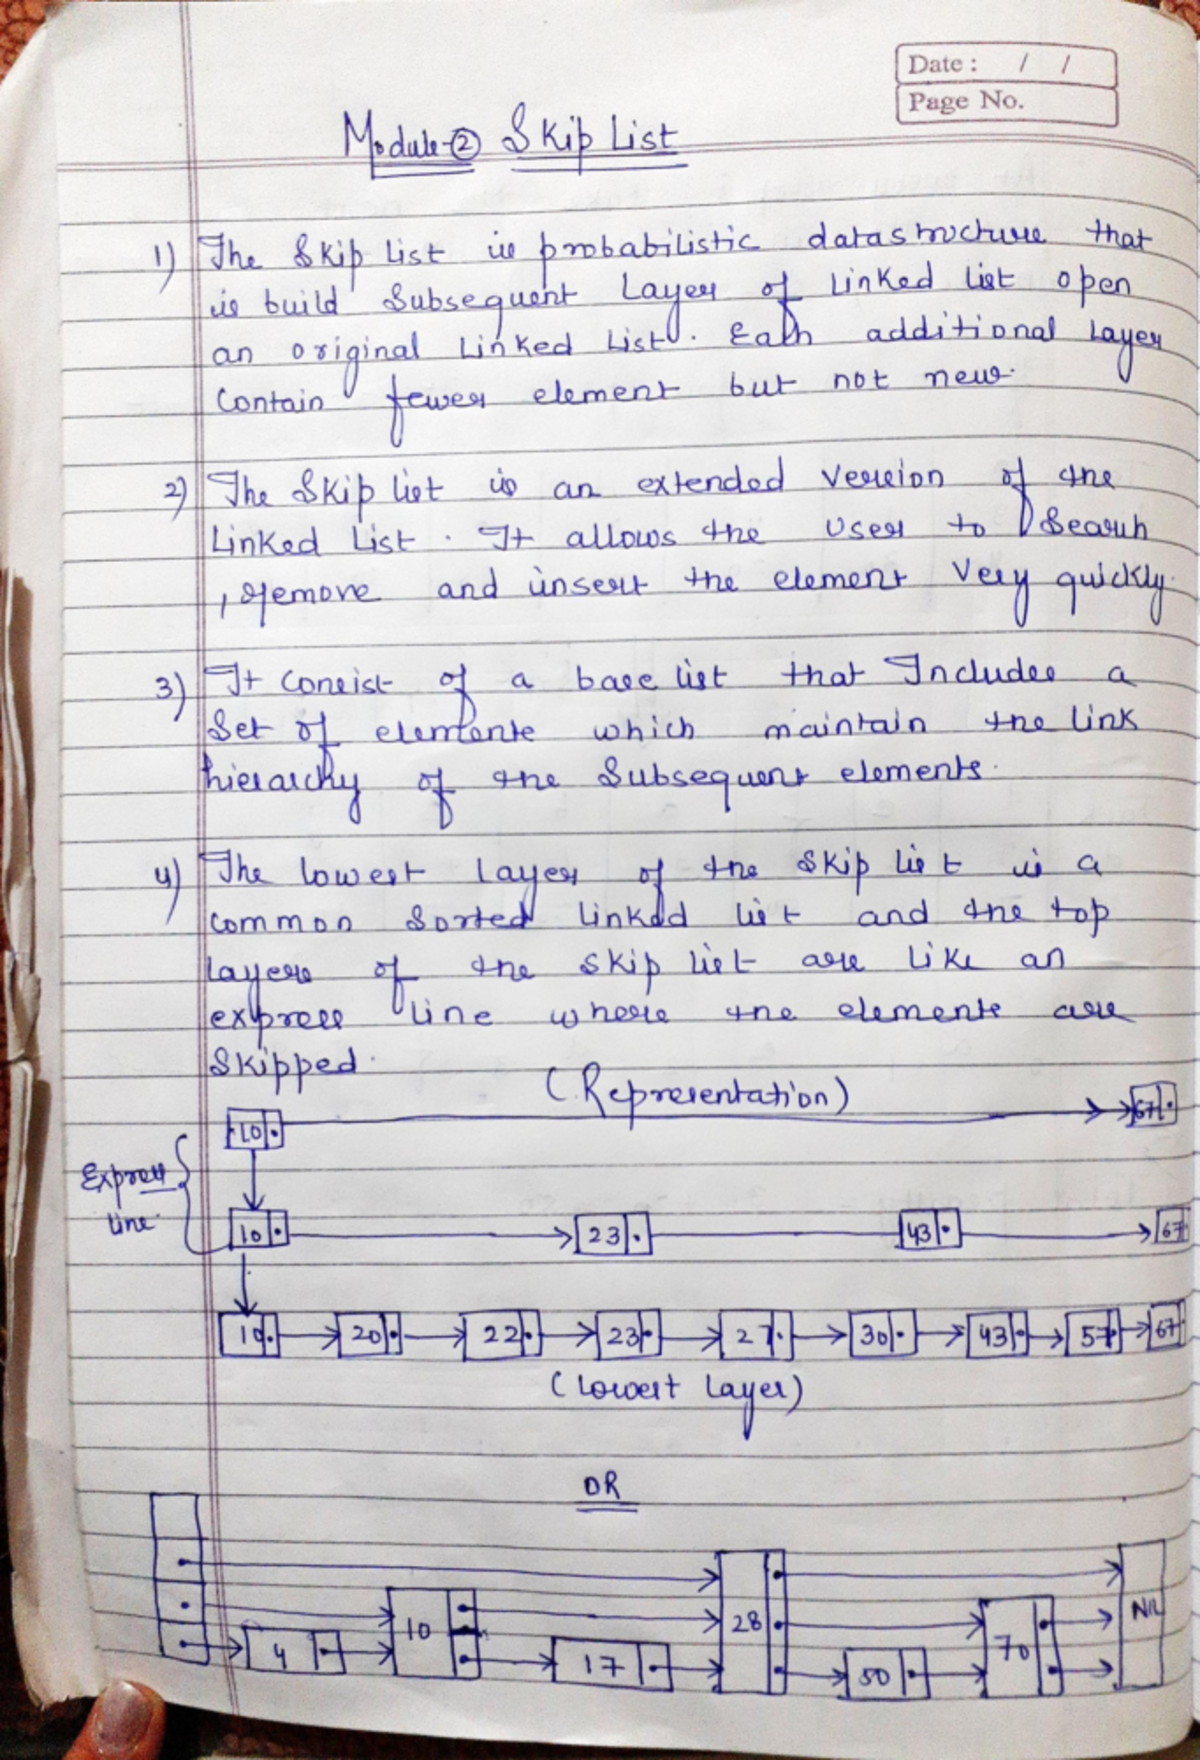 Date : / /
Page No.
Module-② Skip List
1) The Skip List is probabilistic datastructure that
is build Subsequent Layer of Linked list open
an original Linked List. Each additional Layer
Contain fewer element but not new.
2) The Skip list is an extended version of the
Linked List. It allows the user to Search
, remove and insert the element very quickly.
3) It consist of a base list that Includes a
Set of elements which maintain the link
hierarchy of the Subsequent elements.
4) The lowest layer of the Skip list is a
common sorted linked list and the top
layers of the skip list are like an
express line where the elements are
Skipped.
(Representation)
10 67
Express
line
10 23 43 67
10 20 22 23 27 30 43 57 67
(Lowest Layer)
OR
4 10 17 28 50 70 NIL